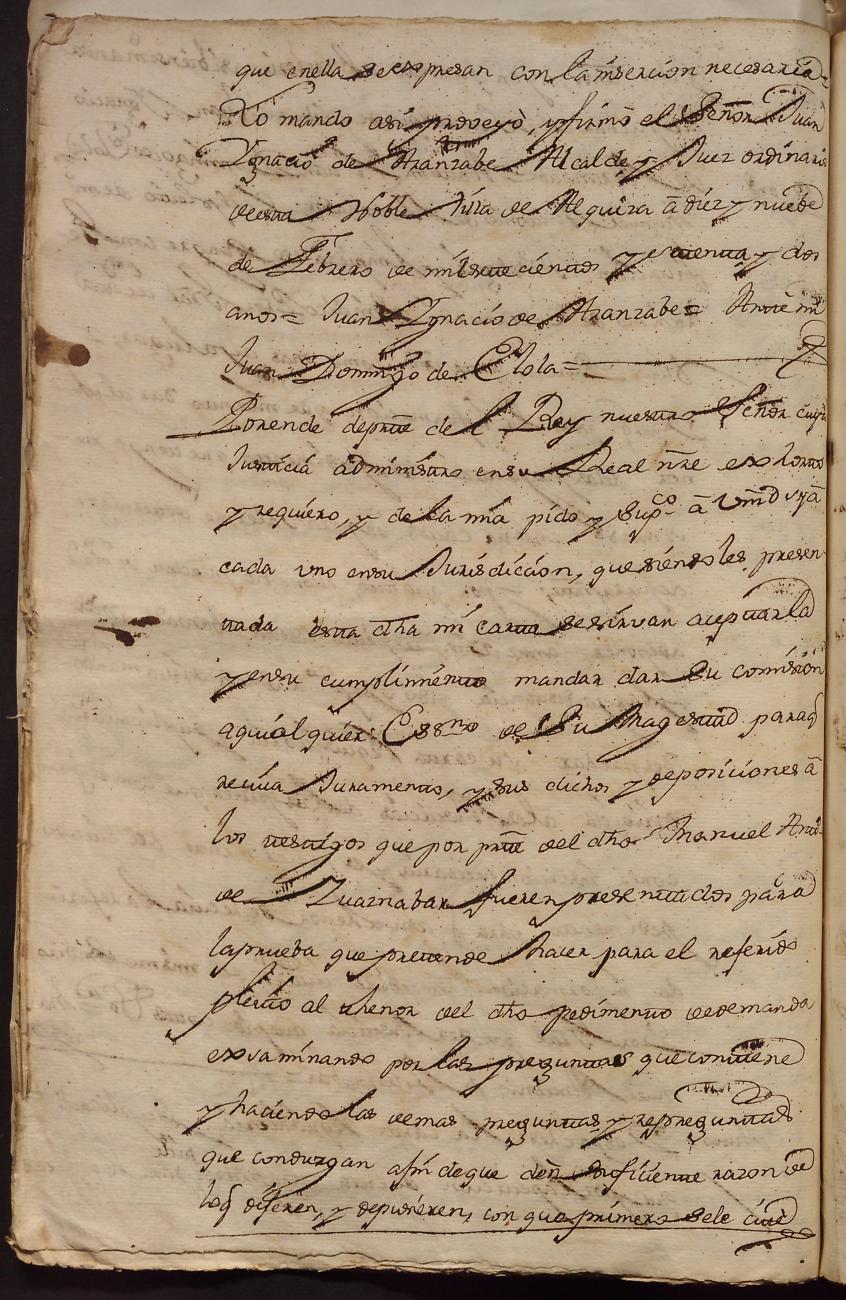 que enella se expresan con la insercion necesaria
Lo mando asi proveyò, y firmò el Señor Juan
Ygnacio de Aranzabe Alcalde y Juez ordinario
de esta Noble Villa de Alquiza à diez y nuebe
de Febrero de mil setecientos y setenta y dos
anos = Juan Ygnacio de Aranzabe = Ante mi
Juan Domingo de Elola =
Porende de prte de el Rey nuestro Señor cuya
Justicia administro en su Real nre exsorto
y requiero, y de la mia pido y Supco à Vmd vyã
cada uno en su Jurisdicion, que siendoles presen
tada esta dha mi carta se sirvan aceptarla
y en su cumplimiento mandar dar su comision
aqualquier Essno de Su Magestad paraq
reciva Juramento, y sus dichos y deposiciones à
los testigos que por prte del dho Manuel Antto
de Zuaznabar fueren presentados para
la prueba que pretende hacer para el referido
pleito al thenor del dho pedimento de demanda
exsaminando por las preguntas que contiene
y haciendo las demas preguntas y repreguntas
que conduzgan afin de que den suficiente razon de
loq dijeren, y depusieren, con que primero se le cite